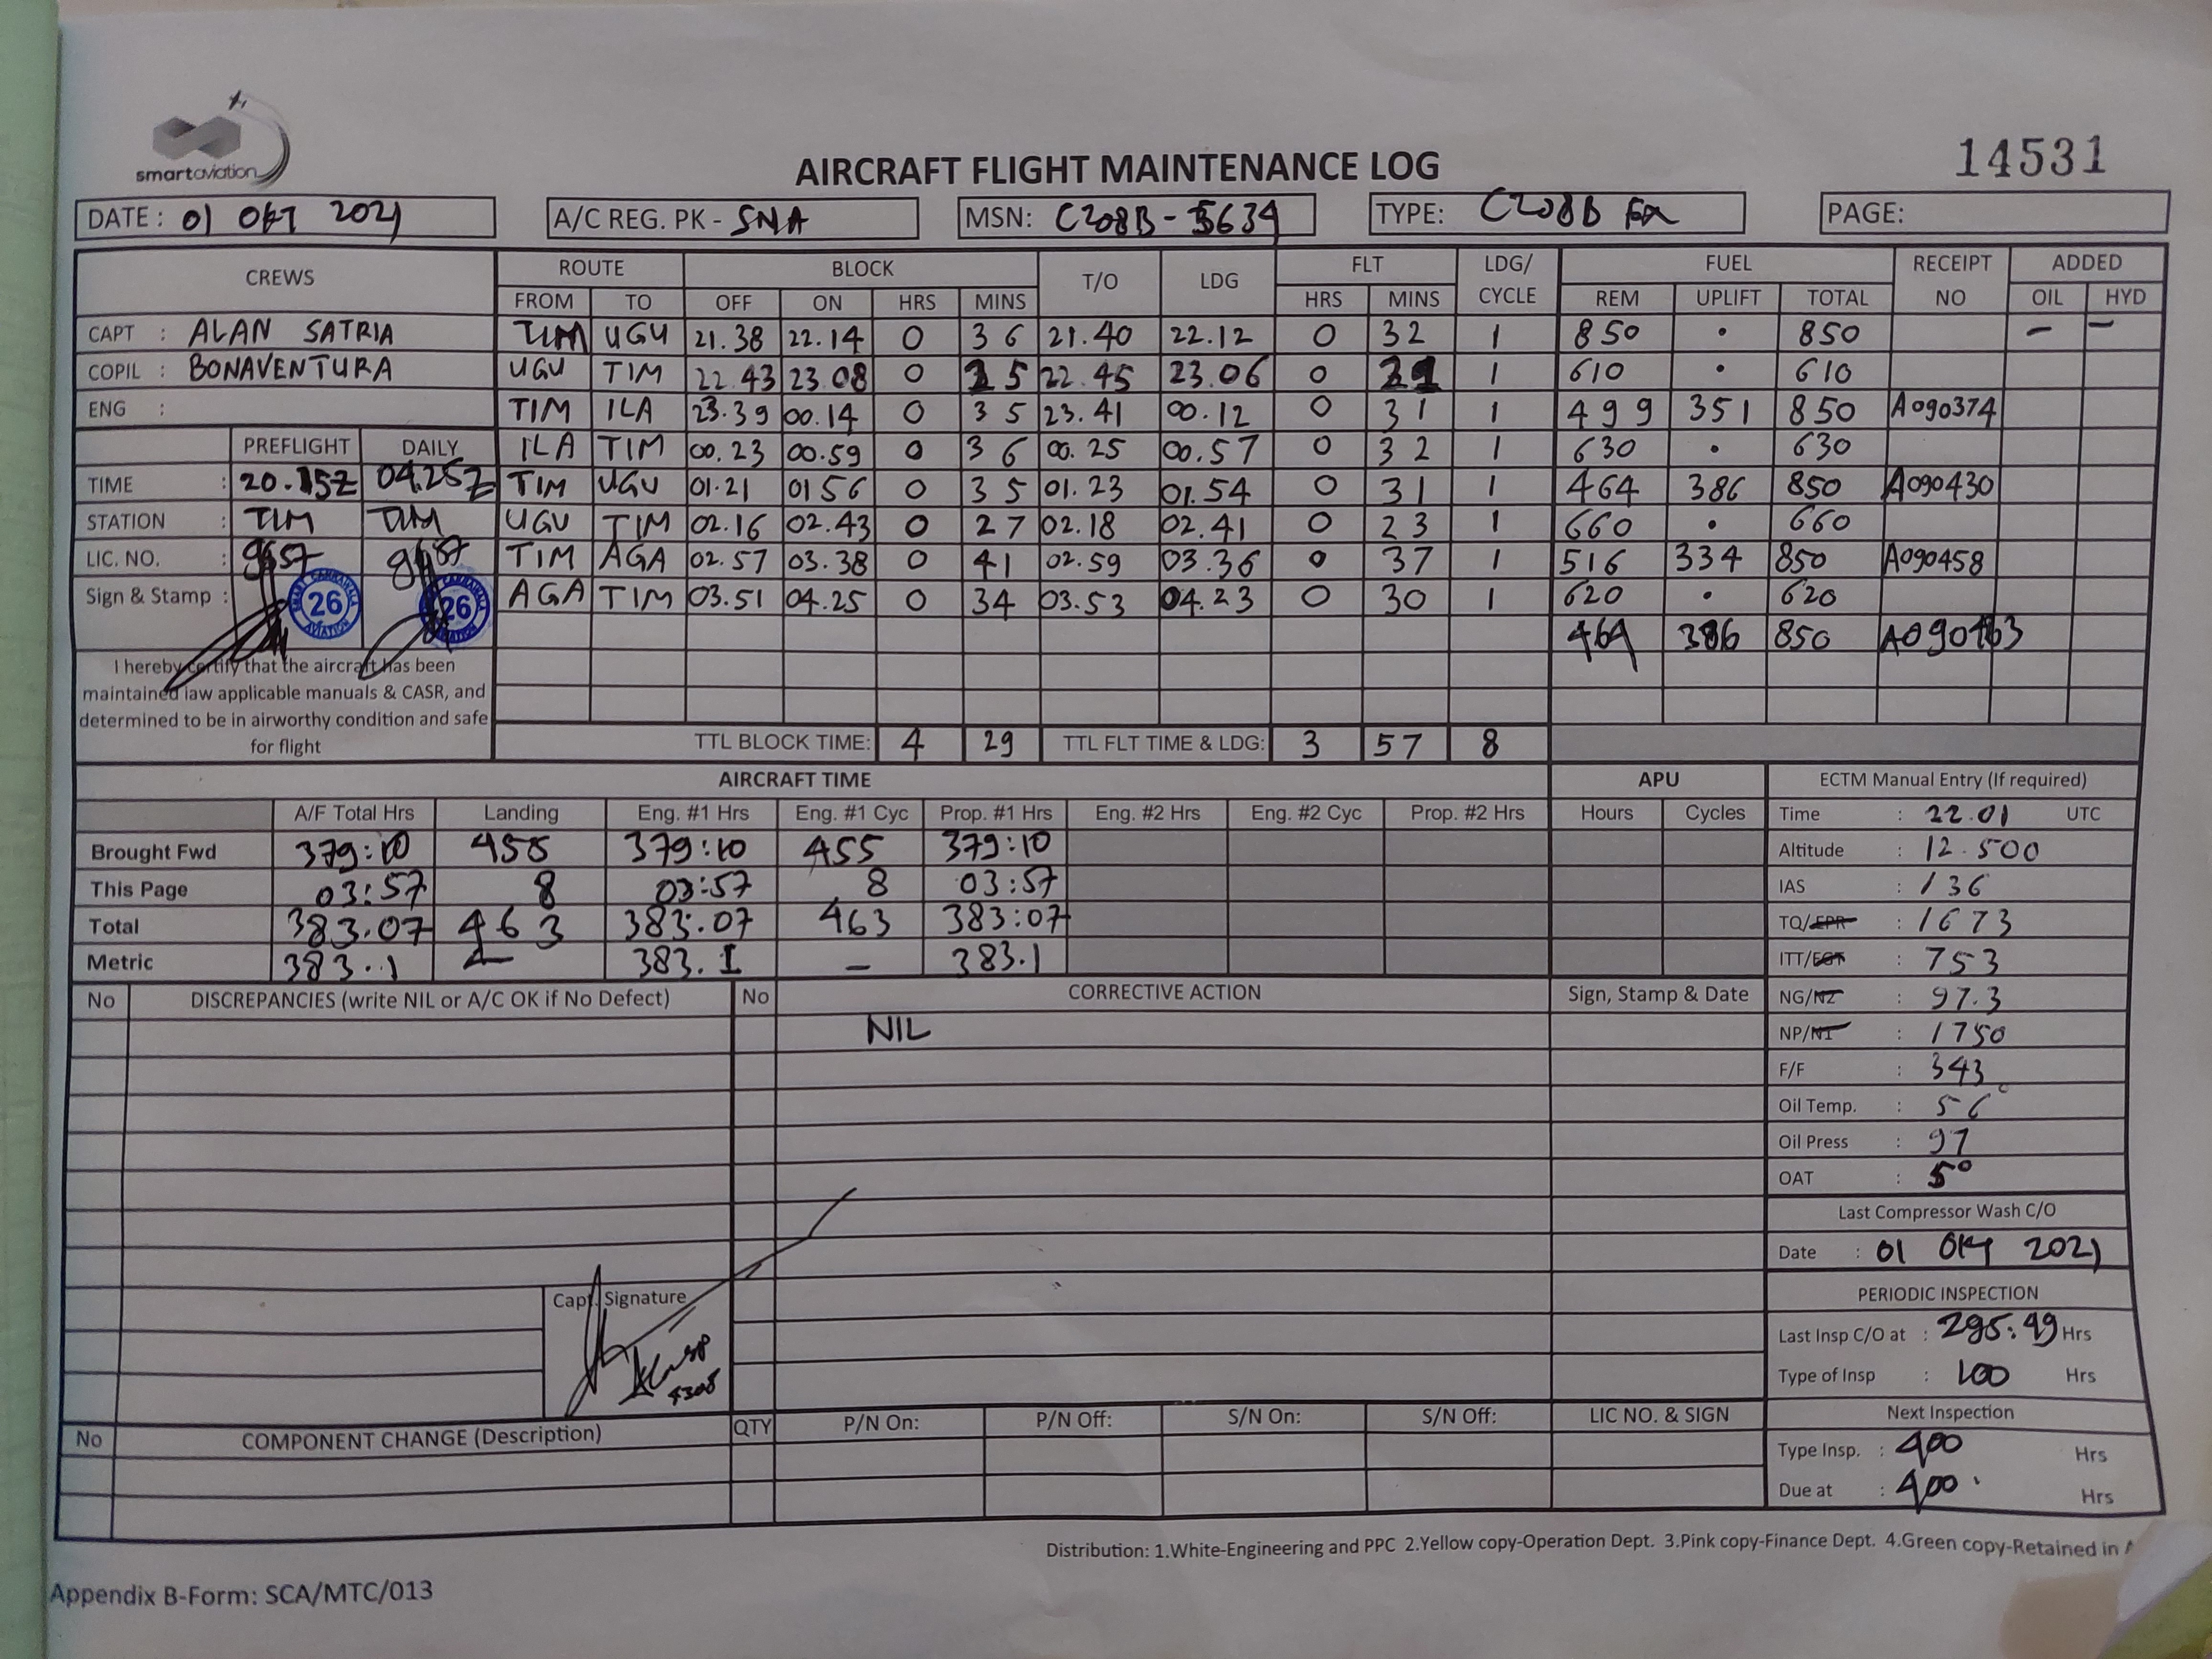 smartaviation
14531
AIRCRAFT FLIGHT MAINTENANCE LOG
DATE : 01 OKT 2021 A/C REG. PK - SNA MSN: C208B-5639 TYPE: C208B EX PAGE:
CREWS ROUTE BLOCK T/O LDG FLT LDG/ CYCLE FUEL RECEIPT NO ADDED
FROM TO OFF ON HRS MINS HRS MINS REM UPLIFT TOTAL OIL HYD
CAPT : ALAN SATRIA TIM UGU 21.38 22.14 0 36 21.40 22.12 0 32 1 850 • 850 – –
COPIL : BONAVENTURA UGU TIM 22.43 23.08 0 25 22.45 23.06 0 21 1 610 • 610
ENG : TIM ILA 23.39 00.14 0 35 23.41 00.12 0 31 1 499 351 850 A090374
PREFLIGHT DAILY ILA TIM 00.23 00.59 0 36 00.25 00.57 0 32 1 630 • 630
TIME : 20.15Z 04.25Z TIM UGU 01.21 01 56 0 35 01.23 01.54 0 31 1 464 386 850 A090430
STATION : TIM TIM UGU TIM 02.16 02.43 0 27 02.18 02.41 0 23 1 660 • 660
LIC. NO. : 9657 9657 TIM AGA 02.57 03.38 0 41 02.59 03.36 0 37 1 516 334 850 A090458
Sign & Stamp : 26 AVIATION 26 AGA TIM 03.51 04.25 0 34 03.53 04.23 0 30 1 620 • 620
464 386 850
I hereby certify that the aircraft has been
maintained iaw applicable manuals & CASR, and
determined to be in airworthy condition and safe
for flight
TTL BLOCK TIME: 4 29 TTL FLT TIME & LDG: 3 57 8
AIRCRAFT TIME APU ECTM Manual Entry (If required)
A/F Total Hrs Landing Eng. #1 Hrs Eng. #1 Cyc Prop. #1 Hrs Eng. #2 Hrs Eng. #2 Cyc Prop. #2 Hrs Hours Cycles Time : 22.01 UTC
Brought Fwd 379:10 455 379:10 455 379:10 Altitude : 12.500
This Page 03:57 8 03:57 8 03:57 IAS : 136
Total 383.07 463 383:07 463 383:07 TQ/EPR : 1673
Metric 383.1 – 383.1 – 383.1 ITT/EGT : 753
No DISCREPANCIES (write NIL or A/C OK if No Defect) No CORRECTIVE ACTION Sign, Stamp & Date NG/N2 : 97.3
NIL NP/N1 : 1750
F/F : 343
Oil Temp. : 56°
Oil Press : 97
OAT : 5°
Last Compressor Wash C/O
Date : 01 OKT 2021
Capt. Signature
PERIODIC INSPECTION
Last Insp C/O at : 295:49 Hrs
Type of Insp : 100 Hrs
4308
No COMPONENT CHANGE (Description) QTY P/N On: P/N Off: S/N On: S/N Off: LIC NO. & SIGN Next Inspection
Type Insp. : 400 Hrs
Due at : 400 Hrs
Distribution: 1.White-Engineering and PPC 2.Yellow copy-Operation Dept. 3.Pink copy-Finance Dept. 4.Green copy-Retained in
Appendix B-Form: SCA/MTC/013